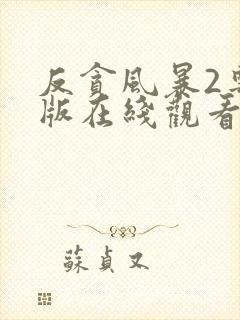 反貪風暴2
版在綫觀看
蘇貞又